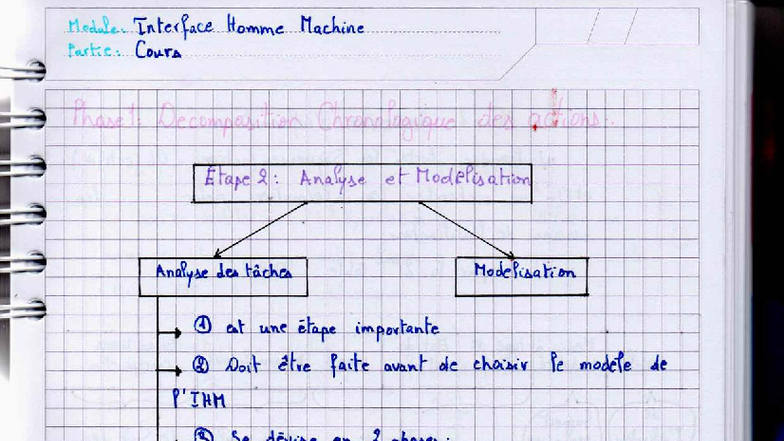 Module: Interface Homme Machine
Partie: Cours
Phase 1: Decomposition Chronologique des actions.
Étape 2: Analyse et Modélisation
Analyse des tâches
Modelisation
① est une étape importante
② Doit être faite avant de choisir le modèle de
l'IHM
③ Se dévise en 2 phases: